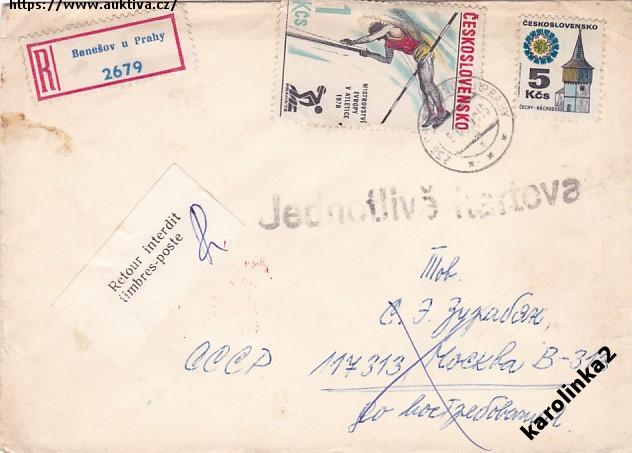 https://www.auktiva.cz/
R
Benešov u Prahy
2679
1
Kčs
ČESKOSLOVENSKO
MISTROVSTVÍ
EVROPY
V ATLETICE
1978
ČESKOSLOVENSKO
5
Kčs
ČECHY-NÁCHODSKO
Jednotlivě kartova
Retour interdit
timbres-poste
Тов.
С. Э. Зурабян,
СССР 117313 Москва В-313
до востребования
karolinka2